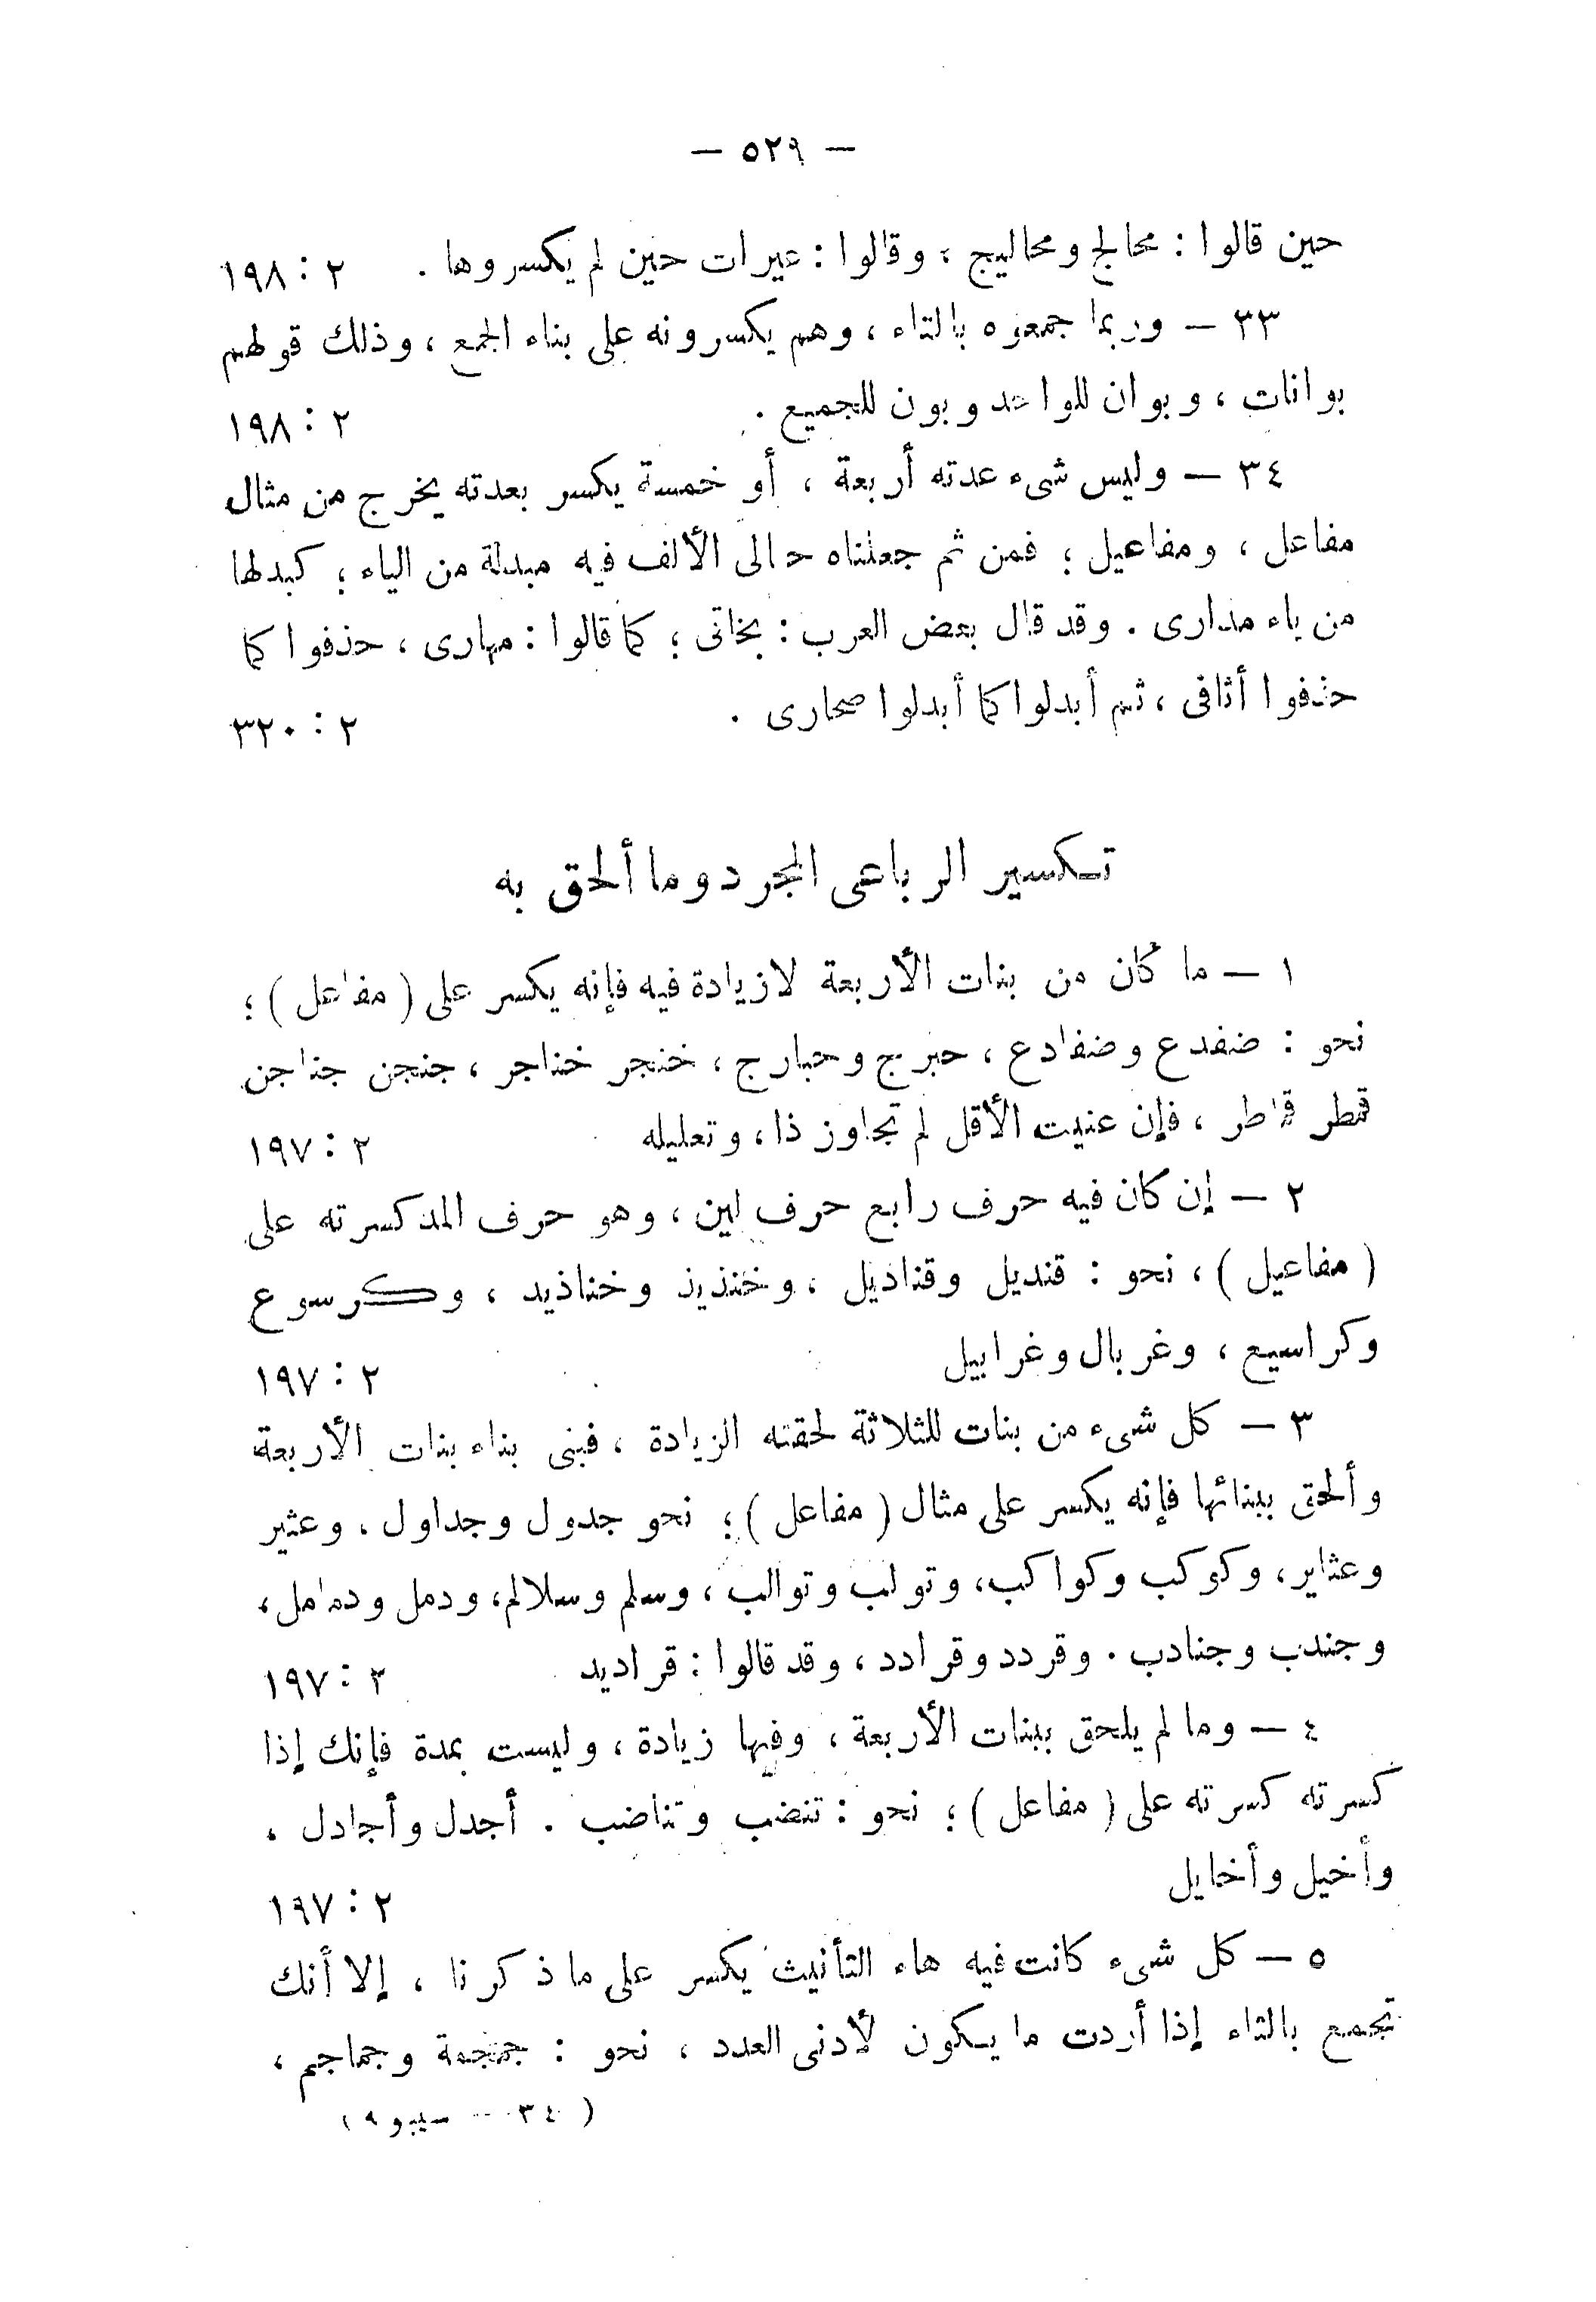 — ٥٢٩ —
حين قالوا : محالج ومحاليج ، وقالوا : عيرات حين لم يكسروها . ٢ : ١٩٨
٣٣ — وربما جمعوه بالتاء ، وهم يكسرونه على بناء الجمع ، وذلك قولهم
بوانات ، وبوان للواحد وبون للجميع . ٢ : ١٩٨
٣٤ — وليس شىء عدته أربعة ، أو خمسة يكسر بعدته يخرج من مثال
مفاعل ، ومفاعيل ؛ فمن ثم جعلناه حالى الألف فيه مبدلة من الياء ؛ كبدلها
من ياء مدارى . وقد قال بعض العرب : بخاتى ؛ كما قالوا : مهارى ، حذفوا كما
حذفوا أثافى ، ثم أبدلوا كما أبدلوا صحارى . ٢ : ٣٢٠
تكسير الرباعى المجرد وما ألحق به
١ — ما كان من بنات الأربعة لا زيادة فيه فإنه يكسر على ( مفاعل ) ؛
نحو : ضفدع وضفادع ، حبرج وحبارج ، خنجر خناجر ، جنجن جناجن
قمطر قماطر ، فإن عنيت الأقل لم تجاوز ذا ، وتعليله ٢ : ١٩٧
٢ — إن كان فيه حرف رابع حرف لين ، وهو حرف المد كسرته على
( مفاعيل ) ، نحو : قنديل وقناديل ، وخنذيذ وخناذيد ، وكرسوع
وكراسيع ، وغربال وغرابيل ٢ : ١٩٧
٣ — كل شىء من بنات للثلاثة لحقته الزيادة ، فبنى بناء بنات الأربعة
وألحق ببنائها فإنه يكسر على مثال ( مفاعل ) ؛ نحو جدول وجداول ، وعثير
وعثاير ، وكوكب وكواكب ، وتولب وتوالب ، وسلم وسلالم ، ودمل ودمامل ،
وجندب وجنادب . وقردد وقرادد ، وقد قالوا : قراديد ٢ : ١٩٧
٤ — وما لم يلحق ببنات الأربعة ، وفيها زيادة ، وليست بمدة فإنك إذا
كسرته كسرته على ( مفاعل ) ؛ نحو : تنضب وتناضب . أجدل وأجادل ،
وأخيل وأخايل ٢ : ١٩٧
٥ — كل شىء كانت فيه هاء التأنيث يكسر على ما ذكرنا ، إلا أنك
تجمع بالتاء إذا أردت ما يكون لأدنى العدد ، نحو : جمجمة وجماجم ،
( ٣٤ — سيبويه )